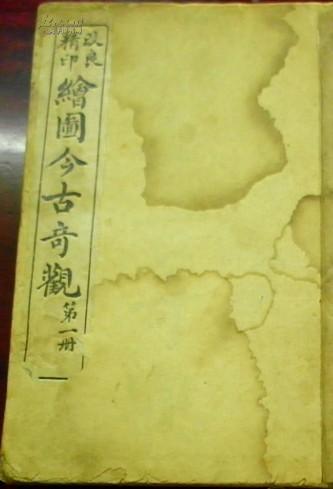 改良
精印
繪圖今古奇觀
第一册